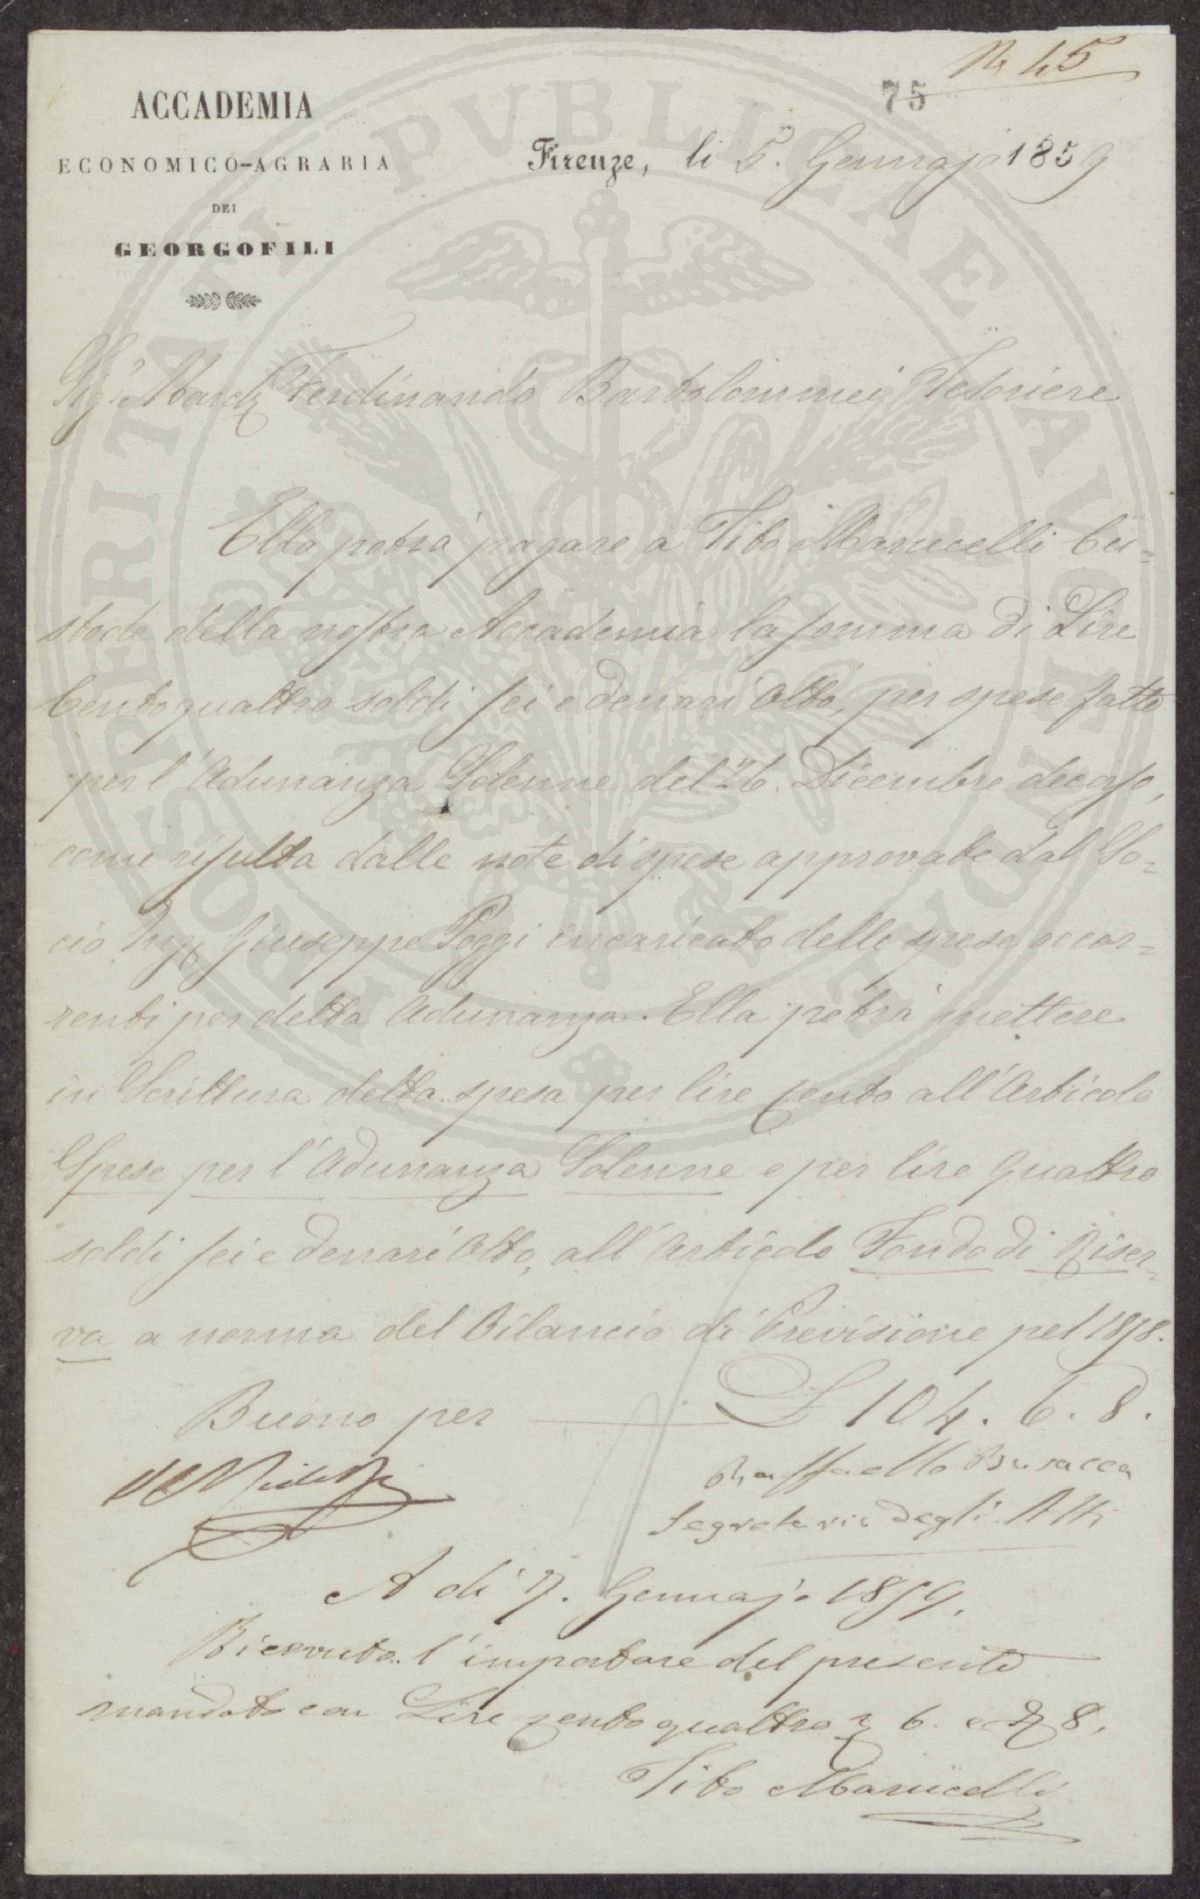 N. 45
75
ACCADEMIA
ECONOMICO-AGRARIA
DEI
GEORGOFILI
Firenze, li 5. Gennajo 1859
Sig.r March. Ferdinando Bartolommei Tesoriere
Ella potrà pagare a Tito Marucelli Cu=
stode della nostra Accademia la somma di Lire
Centoquattro soldi sei e denari Otto, per spese fatte
per l'Adunanza Solenne del 26. Dicembre decorso,
come risulta dalle note di spese approvate dal So=
cio Ing. Giuseppe Poggi incaricato delle spese occor=
renti per detta Adunanza. Ella potrà mettere
in Scrittura detta spesa per lire cento all'Articolo
Spese per l'Adunanza Solenne e per lire quattro
soldi sei e denari Otto, all'Articolo Fondo di Riser=
va a norma del Bilancio di Previsione pel 1858.
Buono per L 104. 6. 8.
Raffaello Busacca
Segretario degli Atti
A dì 7. Gennajo 1859.
Ricevuto l'importare del presente
mandato con Lire cento quattro 6. e 8.
Tito Marucelli
PROSPERITATI PVBLICAE AVGENDAE